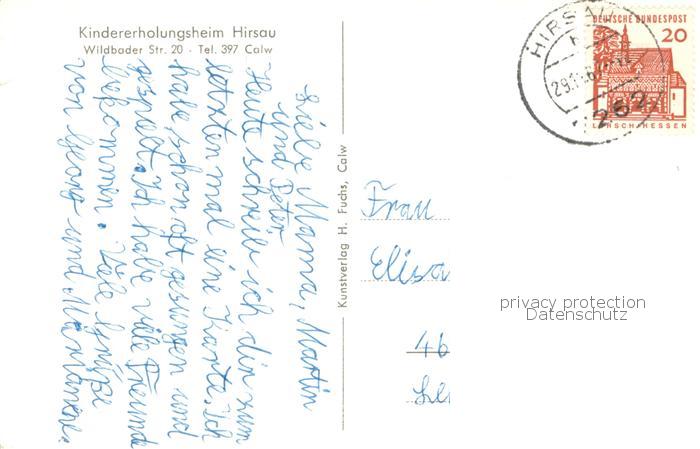 Kindererholungsheim Hirsau
Wildbader Str. 20 · Tel. 397 Calw
Liebe Mama, Martin
und Peter
Heute schreibe ich dir zum
letzten mal eine Karte. Ich
habe schon oft gesungen und
gespielt. Ich habe viele Freunde
bekommen. Viele Grüße
von Georg und Marianne.
Kunstverlag H. Fuchs, Calw
HIRSAU
2622
DEUTSCHE BUNDESPOST
20
LORSCH/HESSEN
Frau
Elisa
46
privacy protection
Datenschutz